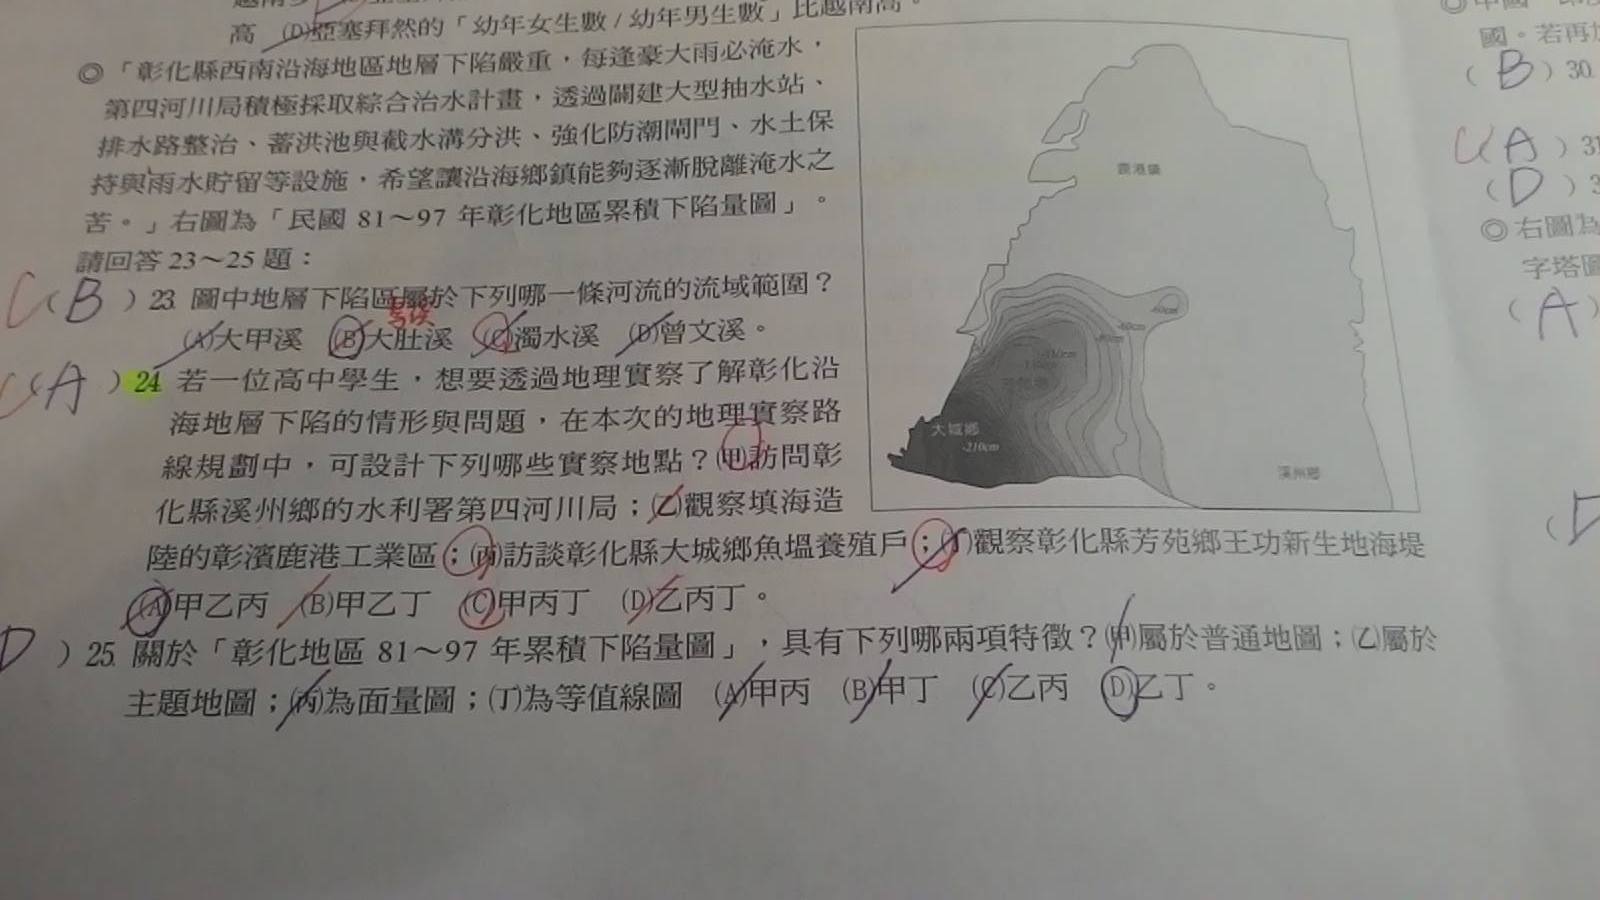 高 (D)亞塞拜然的「幼年女生數/幼年男生數」比越南高。
◎「彰化縣西南沿海地區地層下陷嚴重，每逢豪大雨必淹水，
第四河川局積極採取綜合治水計畫，透過闢建大型抽水站、
排水路整治、蓄洪池與截水溝分洪、強化防潮閘門、水土保
持與雨水貯留等設施，希望讓沿海鄉鎮能夠逐漸脫離淹水之
苦。」右圖為「民國 81～97 年彰化地區累積下陷量圖」。
請回答 23～25 題：
C(B)23. 圖中地層下陷區屬於下列哪一條河流的流域範圍？
(A)大甲溪 (B)大肚溪 (C)濁水溪 (D)曾文溪。
C(A)24. 若一位高中學生，想要透過地理實察了解彰化沿
海地層下陷的情形與問題，在本次的地理實察路
線規劃中，可設計下列哪些實察地點？(甲)訪問彰
化縣溪州鄉的水利署第四河川局；(乙)觀察填海造
陸的彰濱鹿港工業區；(丙)訪談彰化縣大城鄉魚塭養殖戶；(丁)觀察彰化縣芳苑鄉王功新生地海堤
(A)甲乙丙 (B)甲乙丁 (C)甲丙丁 (D)乙丙丁。
D)25. 關於「彰化地區 81～97 年累積下陷量圖」，具有下列哪兩項特徵？(甲)屬於普通地圖；(乙)屬於
主題地圖；(丙)為面量圖；(丁)為等值線圖 (A)甲丙 (B)甲丁 (C)乙丙 (D)乙丁。
鹿港鎮
-60cm
-60cm
大城鄉
-210cm
溪州鄉
國。若再
(B)30.
C(A)31
(D)3
◎右圖為
字塔圖
(A)
(D